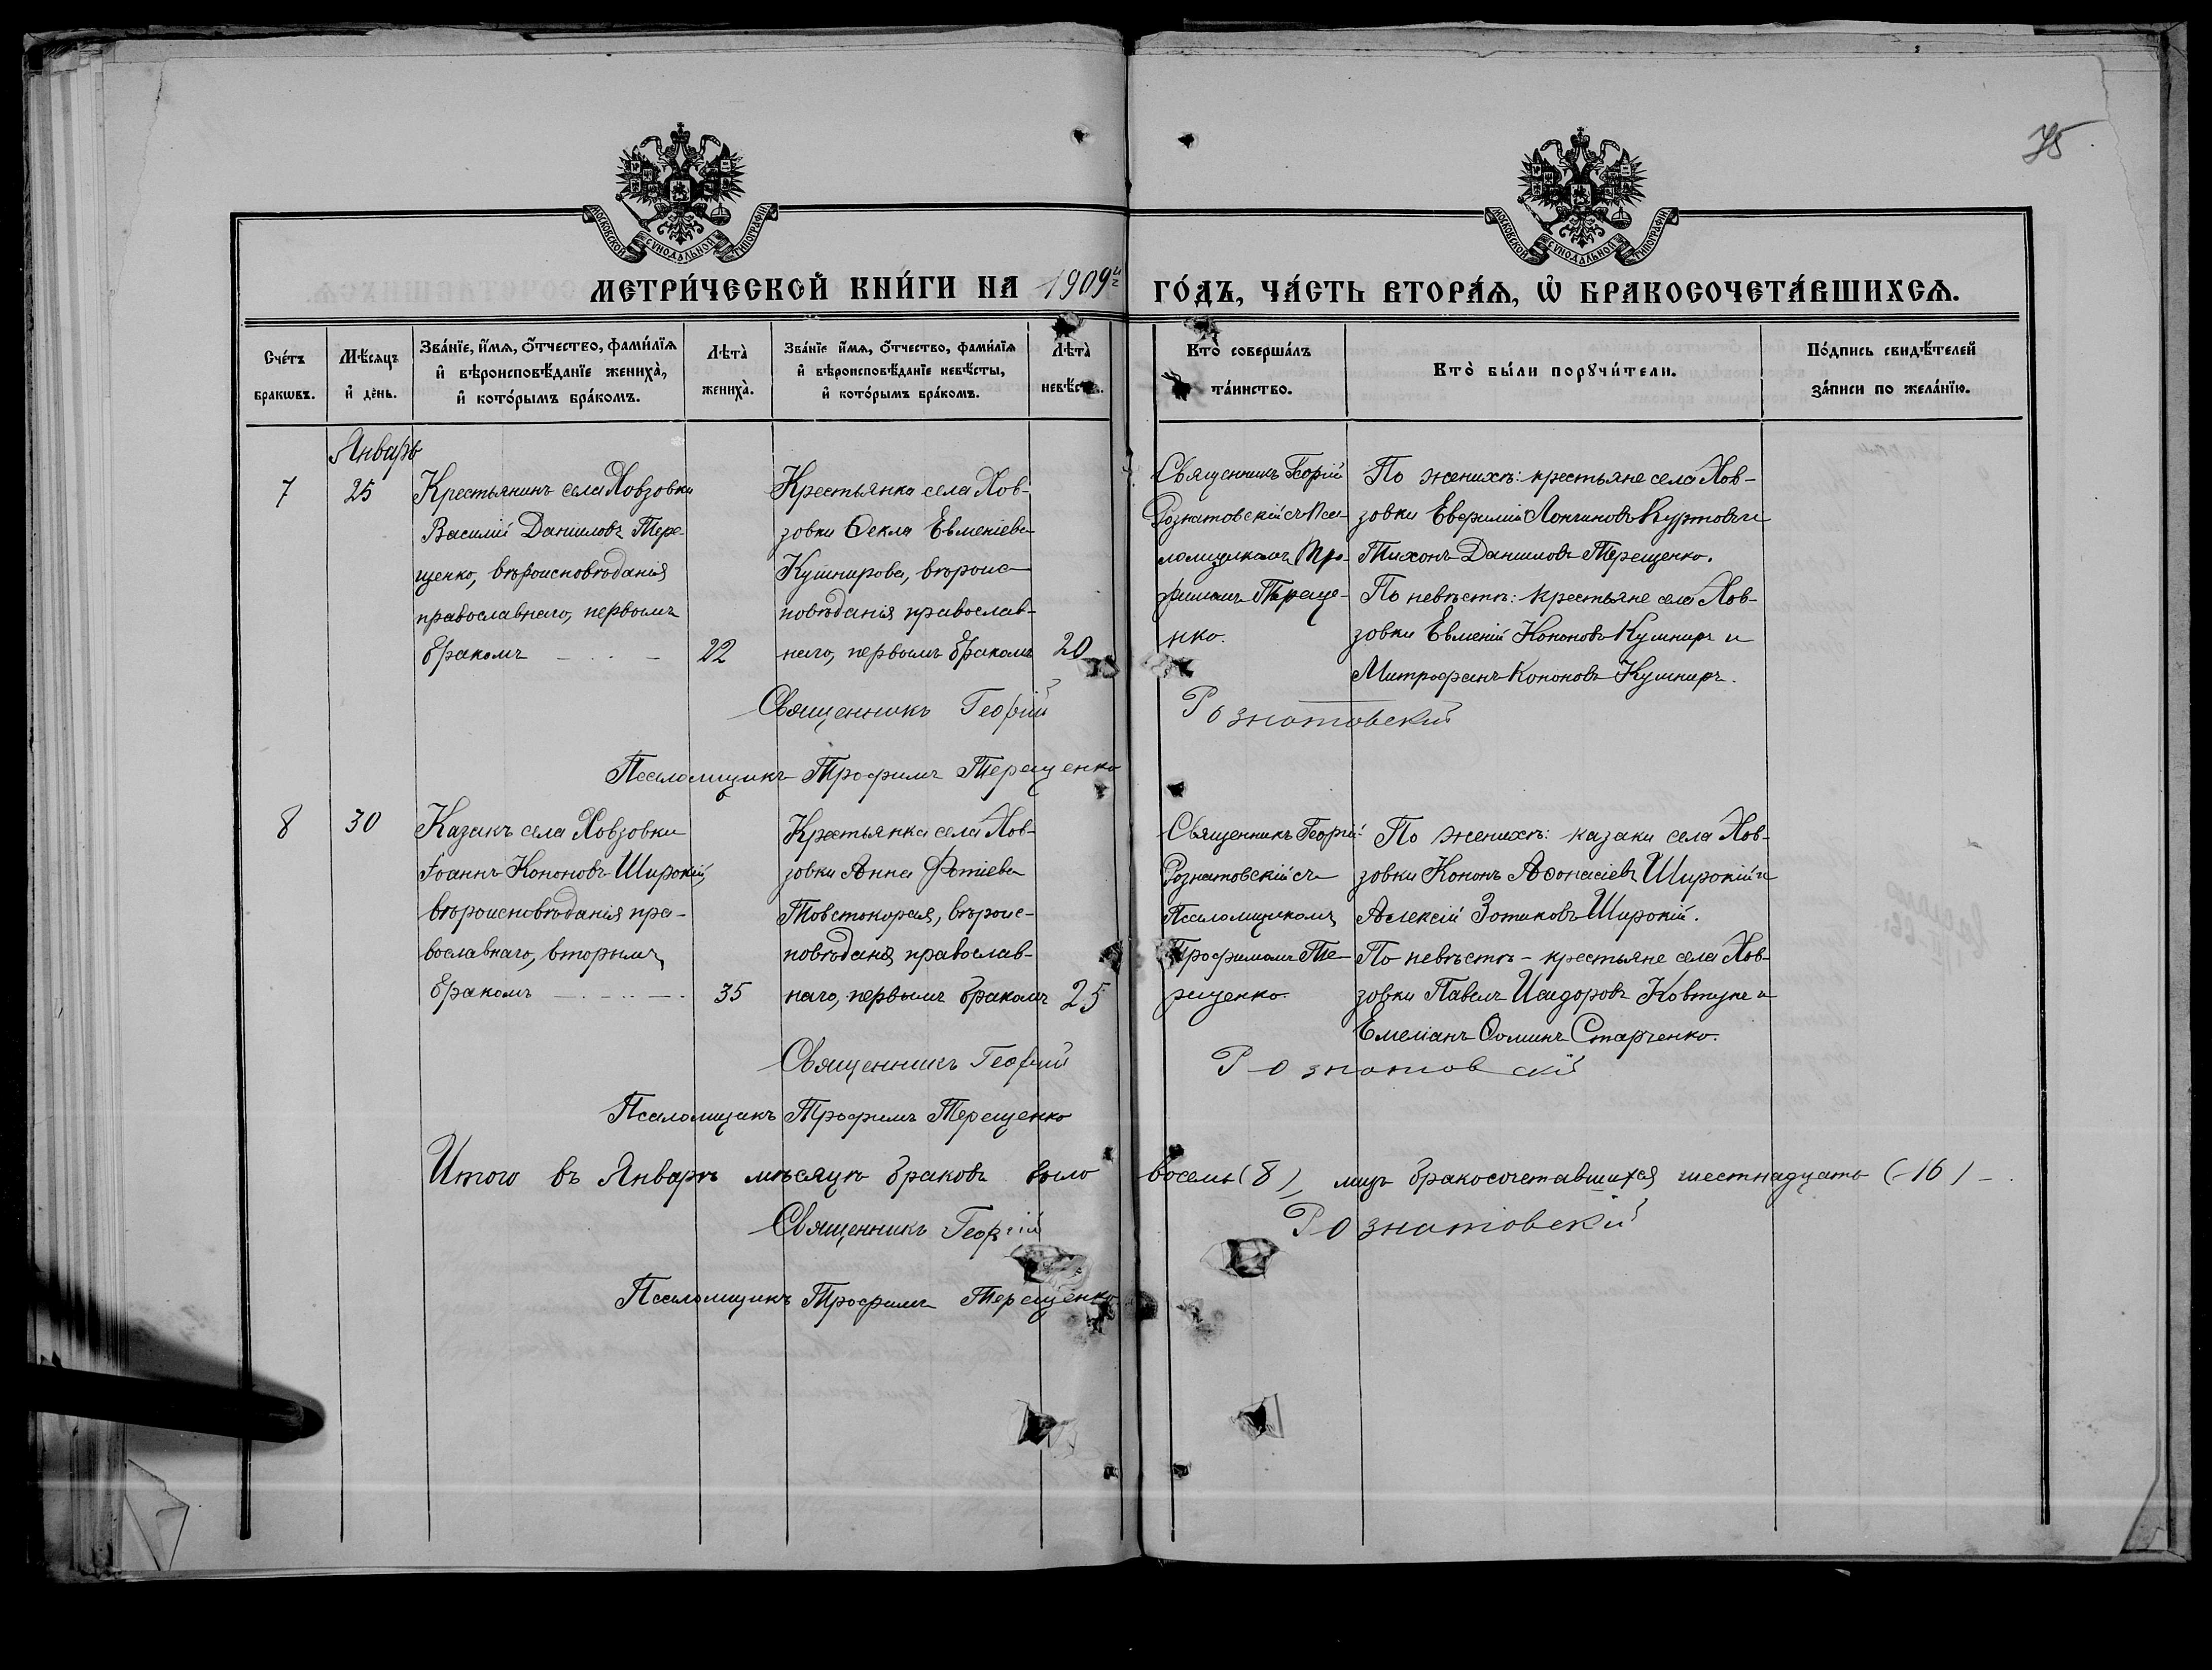 75
МОСКОВСКОЙ СУНОДАЛЬНОЙ ТИПОГРАФІИ
МОСКОВСКОЙ СУНОДАЛЬНОЙ ТИПОГРАФІИ
МЕТРИ́ЧЕСКОЙ КНИ́ГИ НА 1909й ГО́ДЪ, ЧА́СТЬ ВТОРА́Ѧ, Ѽ БРАКОСОЧЕТА́ВШИХСѦ.
Сче́тъ
браковъ.
Мѣ́сяцъ
и҆ де́нь.
Зва́нїе, и҆́мѧ, ѻ҆́тчество, фами́лїѧ
и҆ вѣроисповѣ́данїе жениха̀,
и҆ кото́рымъ бра́комъ.
Лѣта̀
жениха̀.
Зва́нїе и҆́мѧ, ѻ҆́тчество, фами́лїѧ
и҆ вѣроисповѣ́данїе невѣ́сты,
и҆ кото́рымъ бра́комъ.
Лѣта̀
невѣ́сты.
Кто̀ соверша́лъ
та́инство.
Кто̀ бы́ли порꙋчи́тели.
По́дпись свидѣ́телей
за́писи по жела́нїю.
Январь
7
25
Крестьянинъ села Ховзовки
Василій Даниловъ Тере-
щенко, вѣроисповѣданія
православнаго, первымъ
бракомъ
22
Крестьянка села Хов-
зовки Ѳекла Евменіева
Кушнирова, вѣроис-
повѣданія православ-
наго, первымъ бракомъ
20
Священникъ Георгій
Рознатовскій съ Пса-
ломщикомъ Тро-
фимомъ Тереще-
нко.
По женихѣ: крестьяне села Хов-
зовки Евфимій Лонгиновъ Куртовъ и
Тихонъ Даниловъ Терещенко.
По невѣстѣ: крестьяне села Хов-
зовки Евменій Кононовъ Кушниръ и
Митрофанъ Кононовъ Кушниръ.
Священникъ Георгій Рознатовскій
Псаломщикъ Трофимъ Терещенко
8
30
Казакъ села Ховзовки
Іоаннъ Кононовъ Широкій,
вѣроисповѣданія пра-
вославнаго, вторымъ
бракомъ
35
Крестьянка села Хов-
зовки Анна Фотіева
Товстокорая, вѣроис-
повѣданія православ-
наго, первымъ бракомъ
25
Священникъ Георгій
Рознатовскій съ
Псаломщикомъ
Трофимомъ Те-
рещенко.
По женихѣ: казаки села Хов-
зовки Кононъ Аѳонасіевъ Широкій и
Алексій Зотиковъ Широкій.
По невѣстѣ - крестьяне села Хов-
зовки Павелъ Исидоровъ Ковтунъ и
Емеліанъ Ѳоминъ Старченко.
Священникъ Георгій Рознатовскій
Псаломщикъ Трофимъ Терещенко
Итого въ Январѣ мѣсяцѣ браковъ было восемь (8), лицъ бракосочетавшихся шестнадцать (16)
Священникъ Георгій Рознатовскій
Псаломщикъ Трофимъ Терещенко